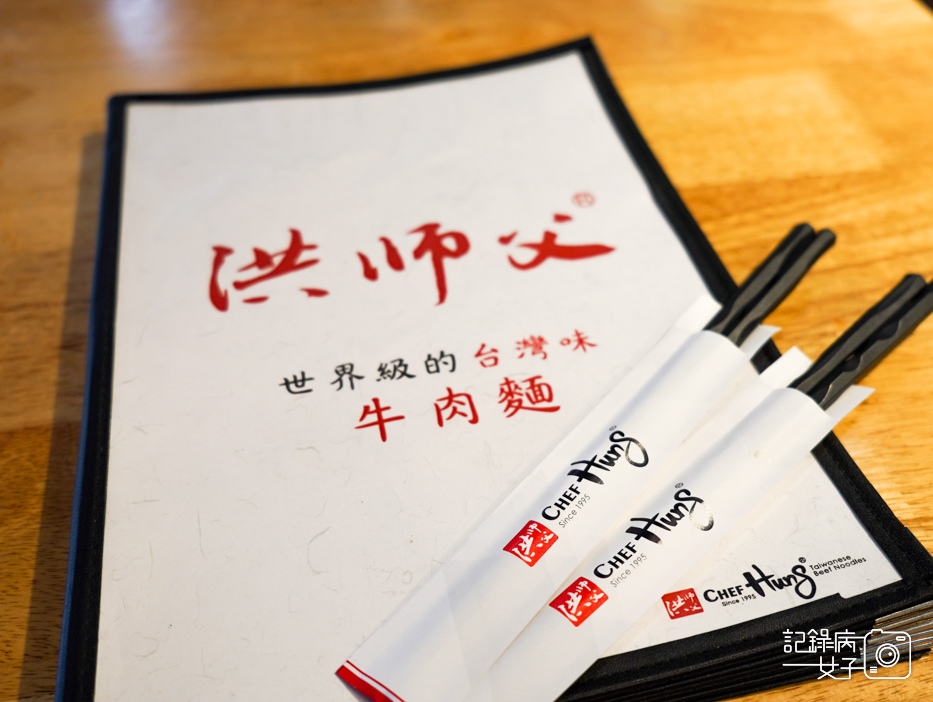 洪师父®
世界級的台灣味
牛肉麵
洪师父 CHEF Hung®
Since 1995
洪师父 CHEF Hung®
Since 1995
洪师父 CHEF Hung® Taiwanese
Since 1995 Beef Noodles
記錄病
女子